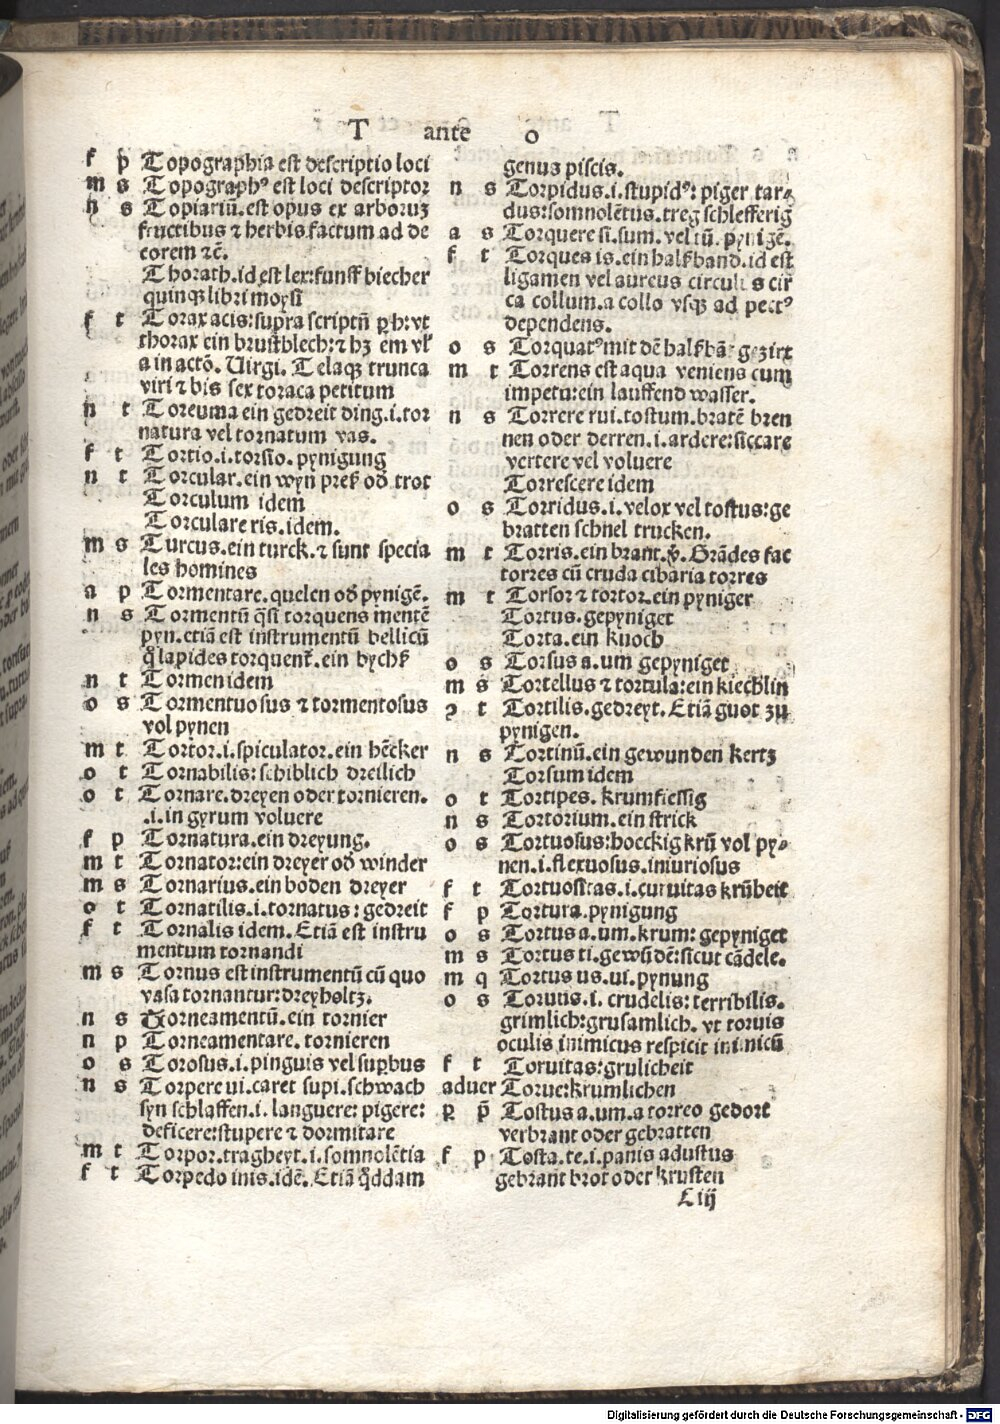 T ante o
f p Topographia est descriptio loci
m s Topographꝰ est loci descriptor
n s Topiariū.est opus ex arboruꝫ
fructibus ⁊ herbis.factum ad de
corem ⁊c̄.
Thorath.id est lex:funff biecher
quinqꝫ libri moysi
f t Torax acis:supra scriptū ꝑ h:vt
thorax ein brustblech:⁊ hꝫ em vl̕
a in actō. Uirgi. Telaqꝫ trunca
viri ⁊ bis sex toraca petitum
n t Toreuma ein gedreit ding.i.tor
natura vel tornatum vas.
f t Tortio.i.torsio.pynigung
n t Torcular.ein wyn preß od̕ trot
Torculum idem
Torculare ris.idem.
m s Turcus.ein turck.⁊ sunt specia
les homines
a p Tormentare.quelen od̕ pynigē.
n s Tormentū q̄si torquens mentē
pyn.etiā est instrumentū bellicū
q̊ lapides torquent̕.ein bychß
n t Tormen idem
o s Tormentuosus ⁊ tormentosus
vol pynen
m t Tortor.i.spiculator.ein hēcker
o t Tornabilis:schiblich dreilich
o t Tornare.dreyen oder tornieren.
.i.in gyrum voluere
f p Tornatura.ein dreyung.
m t Tornator:ein dreyer od̕ winder
m s Tornarius.ein boden dreyer
o t Tornatilis.i.tornatus:gedreit
f t Tornalis idem. Etiā est instru
mentum tornandi
m s Tornus est instrumentū cū quo
vasa tornantur:dreyholtz.
n s Torneamentū.ein tornier
n p Torneamentare.tornieren
o s Torosus.i.pinguis vel suꝑbus
n s Torpere ui.caret supi.schwach
syn schlaffen.i.languere:pigere:
deficere:stupere ⁊ dormitare
m t Torpor.tragheyt.i.somnolētia
f t Torpedo inis.idē. Etiā q̊ddam
genus piscis.
n s Torpidus.i.stupidꝰ:piger tar⸗
dus:somnolētus.treg schlefferig
a s Torquere si.sum.vel tū.pynigē.
f t Torques is.ein halßband.id est
ligamen vel aureus circulus cir
ca collum.a collo vsqꝫ ad pectꝰ
dependens.
o s Torquatꝰ mit dē halßbā gezirt
m t Torrens est aqua veniens cum
impetu:ein lauffend wasser.
n s Torrere rui.tostum.bratē bren
nen oder derren.i.ardere:siccare
vertere vel voluere
Torrescere idem
o s Torridus.i.velox vel tostus:ge
bratten schnel trucken.
m t Torris.ein brant.ꝟ. Grādes fac
torres cū cruda cibaria torres
m t Torsor ⁊ tortor.ein pyniger
Tortus.gepyniget
Torta.ein knoch
o s Torsus a.um gepyniget
m s Tortellus ⁊ tortula:ein kiechlin
ꝯ t Tortilis.gedreyt. Etiā guot zu
pynigen.
n s Tortinū.ein gewunden kertz
Torsum idem
o t Tortipes. krumfiessig
n s Tortorium.ein strick
o s Tortuosus:hoeckig krū vol py⸗
nen.i.flexuosus.iniuriosus
f t Tortuositas.i.curuitas krūbeit
f p Tortura.pynigung
o s Tortus a.um.krum:gepyniget
m s Tortus ti.gewūdē:sicut cādele.
m q Tortus us.ui.pynung
o s Toruus.i. crudelis:terribilis.
grimlich:grusamlich. vt toruis
oculis inimicus respicit inimicū
f t Toruitas:grulicheit
aduer Torue:krumlichen
ꝑ p̄ Tostus a.um.a torreo gedort
verbrant oder gebratten
f p Tosta.te.i.panis adustus
gebrant brot oder krusten
L iij
Digitalisierung gefördert durch die Deutsche Forschungsgemeinschaft - DFG